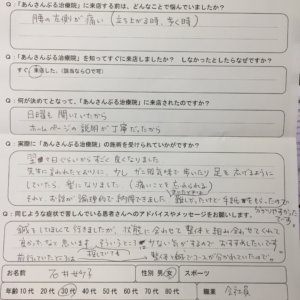 Q:「あんさんぶる治療院」に来店する前は、どんなことで悩んでいましたか?
腰の左側が痛い(立ち上がる時、歩く時)
Q:「あんさんぶる治療院」を知ってすぐに来店しましたか? しなかったとしたらなぜですか?
すぐ来店した。(該当なら○で可)
Q:何が決めてとなって、「あんさんぶる治療院」に来店されたのですか?
日曜も開いていたから
ホームページの説明が丁寧だったから
Q:実際に「あんさんぶる治療院」の施術を受けられていかがですか?
翌日ぐらいからすごく良くなりました
先生に言われたとおりに、少しガニ股気味で歩いたり足を広げるように
していたら、楽になりました。(痛いことを忘れられる
それと、お話が論理的で納得できました
分かりやすかった
です。
Q:同じような症状で苦しんでいる患者さんへのアドバイスやメッセージをお願いします。
鍼をしてほしくて行きましたが、状態に合わせて整体と組み合わせてくれて
良かったなと思います。そういうところは少ない気がするのでおすすめしたいです。
前行っていたところは整体、鍼でコースが分かれていたので。
お名前 石井 性別 男・女 スポーツ
年齢 10代 20代 30代 40代 50代 60代 70代 80代 職業 会社員